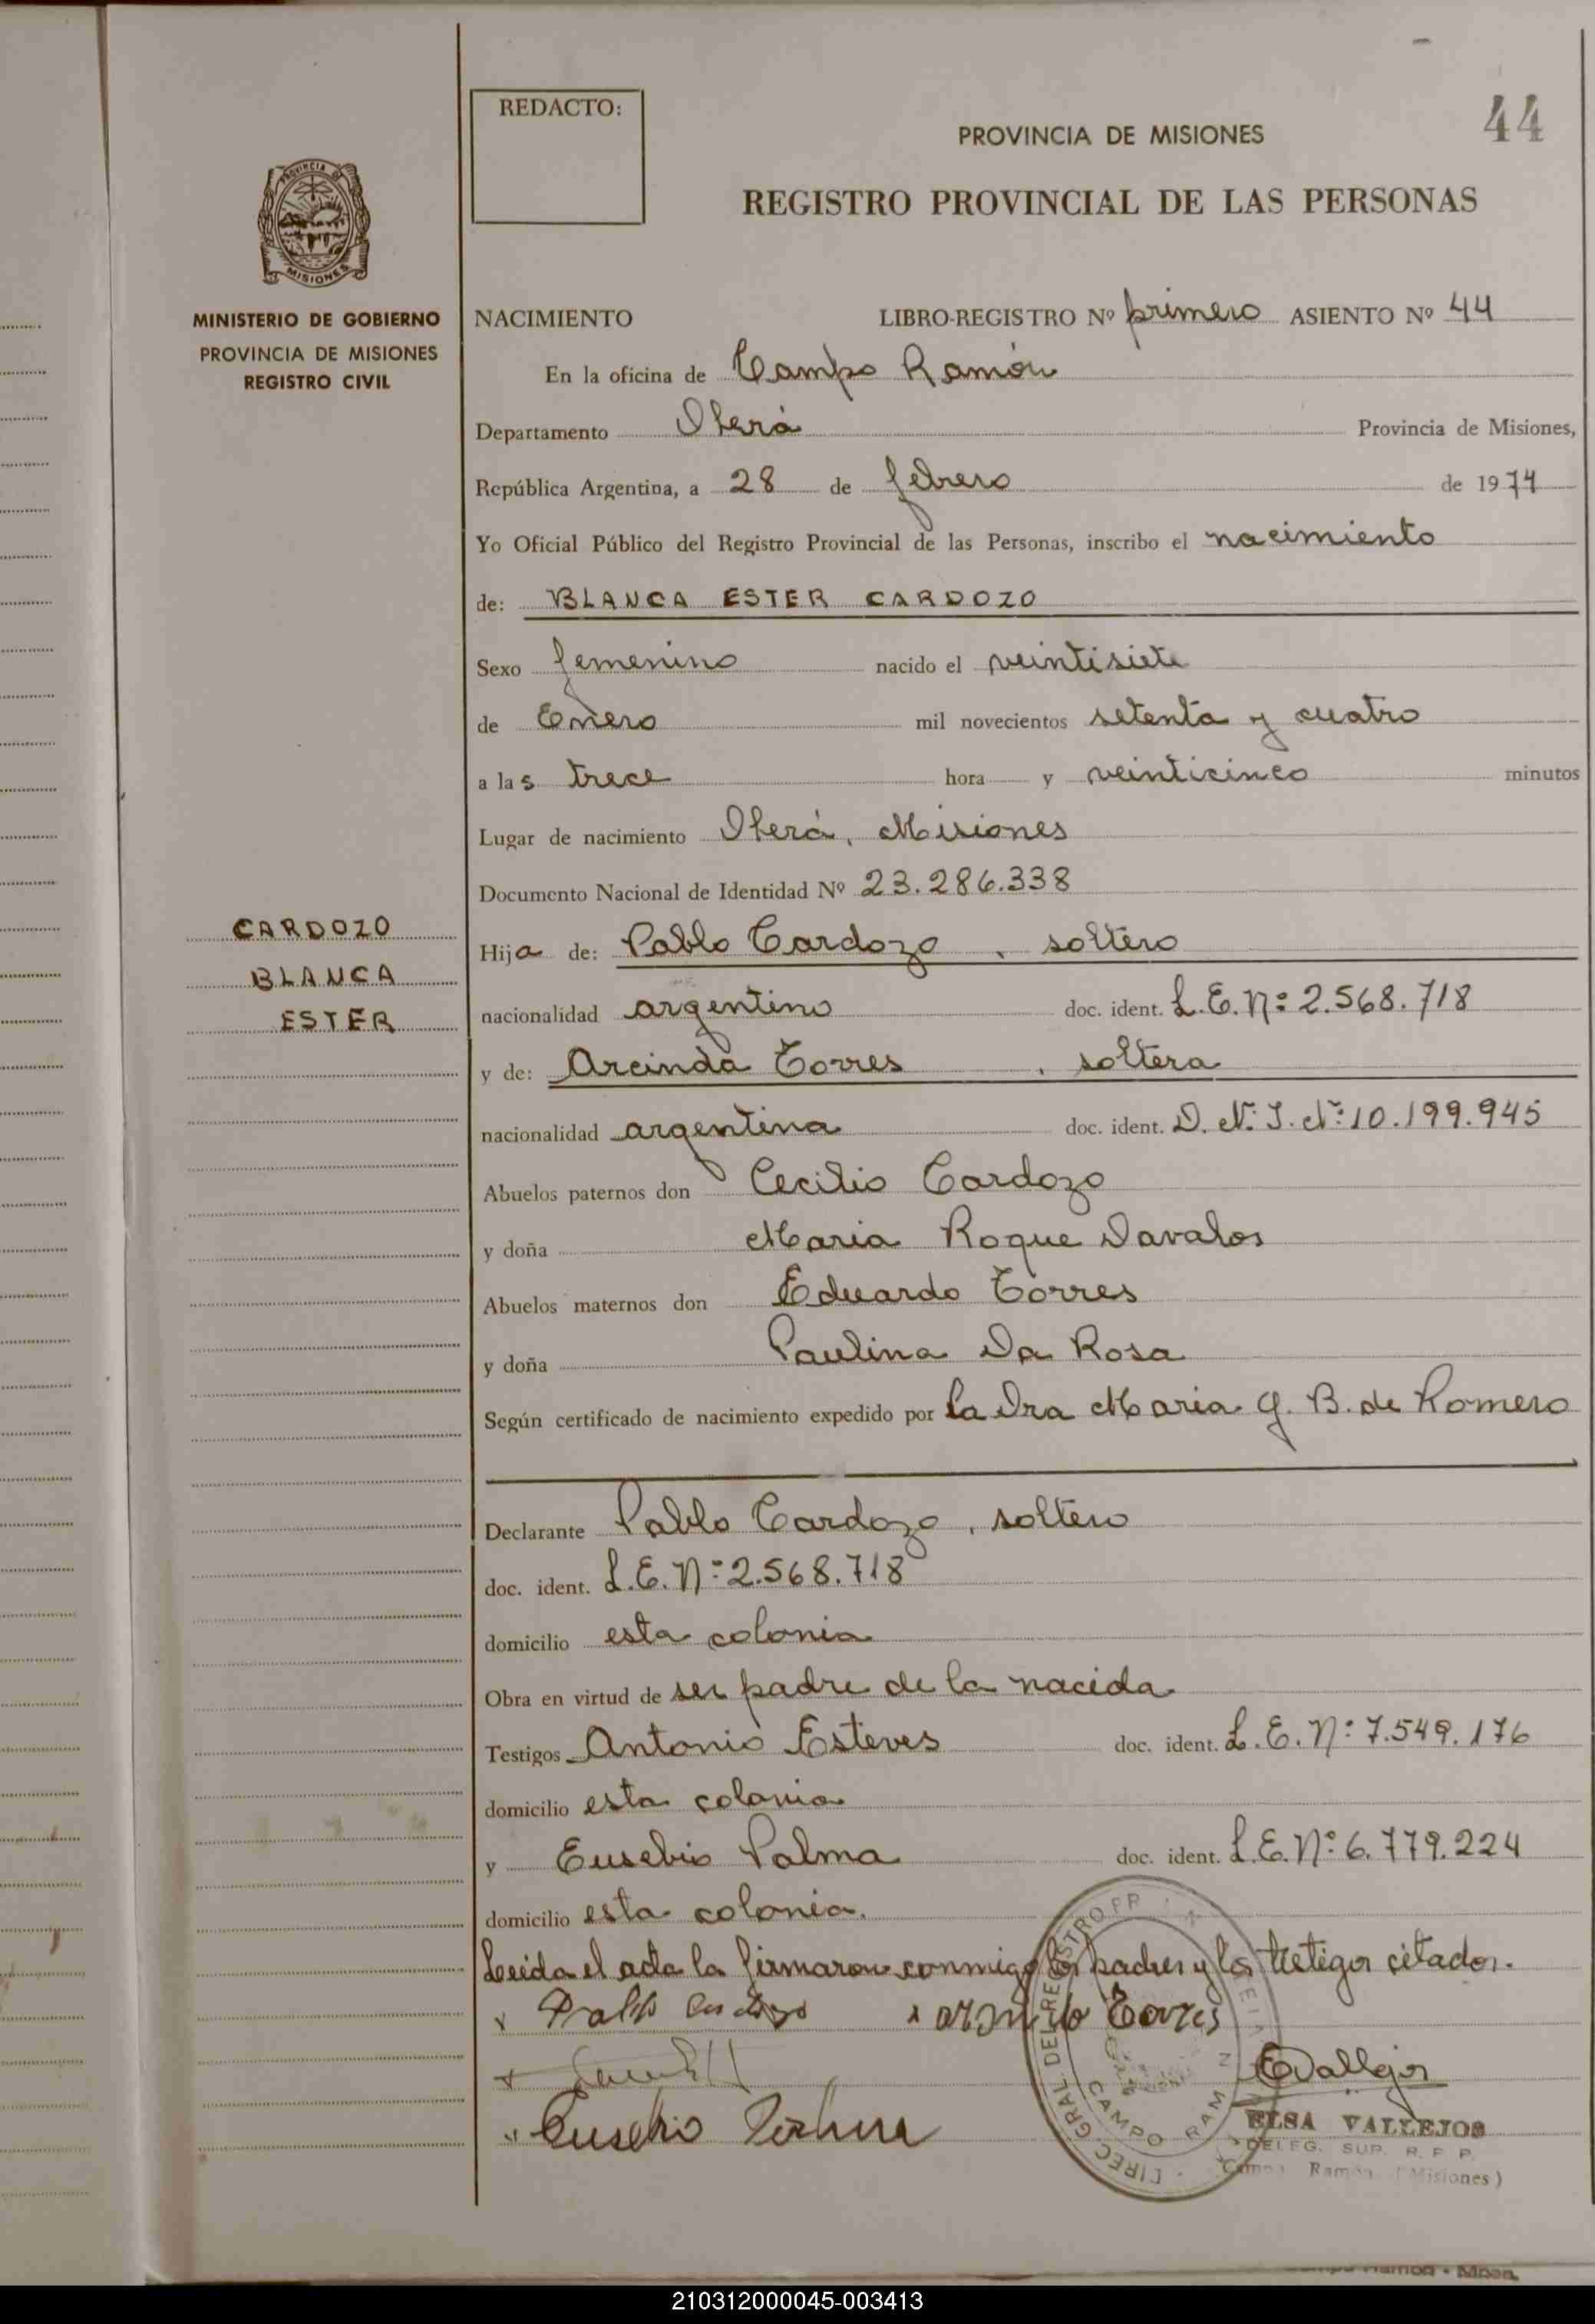 REDACTO:
44
PROVINCIA DE MISIONES
REGISTRO PROVINCIAL DE LAS PERSONAS
PROVINCIA DE
MISIONES
MINISTERIO DE GOBIERNO
PROVINCIA DE MISIONES
REGISTRO CIVIL
NACIMIENTO LIBRO-REGISTRO Nº primero ASIENTO Nº 44
En la oficina de Campo Ramón
Departamento Oberá Provincia de Misiones,
República Argentina, a 28 de febrero de 1974
Yo Oficial Público del Registro Provincial de las Personas, inscribo el nacimiento
de: BLANCA ESTER CARDOZO
Sexo femenino nacido el veintisiete
de Enero mil novecientos setenta y cuatro
a las trece hora y veinticinco minutos
Lugar de nacimiento Oberá, Misiones
Documento Nacional de Identidad Nº 23.286.338
CARDOZO
BLANCA
ESTER
Hija de: Pablo Cardozo, soltero
nacionalidad argentino doc. ident. L.E.Nº 2.568.718
y de: Arcinda Torres, soltera
nacionalidad argentina doc. ident. D.N.I.Nº 10.199.945
Abuelos paternos don Cecilio Cardozo
y doña Maria Roque Davalos
Abuelos maternos don Eduardo Torres
y doña Paulina Da Rosa
Según certificado de nacimiento expedido por la Dra Maria G. B. de Romero
Declarante Pablo Cardozo, soltero
doc. ident. L.E.Nº 2.568.718
domicilio esta colonia
Obra en virtud de ser padre de la nacida
Testigos Antonio Esteves doc. ident. L.E.Nº 7.549.176
domicilio esta colonia
y Eusebio Palma doc. ident. L.E.Nº 6.779.224
domicilio esta colonia.
Leida el acta la firmaron conmigo los padres y los testigos citados.
Pablo Cardozo Torres
EVallejos
Eusebio Palma
DIREC. GRAL. DEL REGISTRO
CAMPO RAMON
ELSA VALLEJOS
DELEG. SUP. R. P. P.
Campo Ramón (Misiones)
210312000045-003413